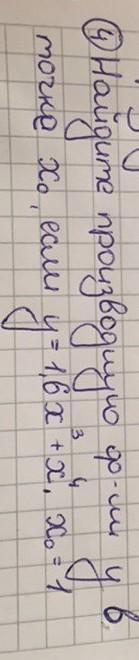 ④ Найдите производную ф-ии y в
точке x₀, если y = 1,6x³ + x⁴, x₀ = 1